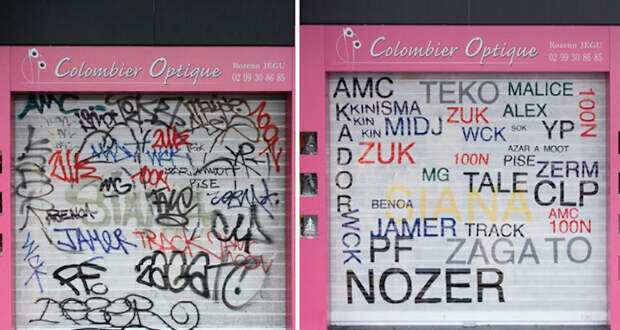 Colombier Optique
Rozenn JÉGU
02 99 30 86 85
AMC
ZUK
MIDJ
WCK
ZUK
100N
MG
PiSE
TALE
SIANA
BENOA
JAMER
TRACK
AMC
100N
WCK
PF
ZAGATO
Colombier Optique
Rozenn JÉGU
02 99 30 86 85
AMC
TEKO
MALICE
100N
KINISMA
ZUK
ALEX
KIN
MIDJ
WCK
SOK
YP
AKADOR
ZUK
100N
AZAR A MOOT
PISE
ZERM
MG
TALE
CLP
BENOA
SIANA
AMC
100N
JAMER
TRACK
WCK
PF
ZAGATO
NOZER